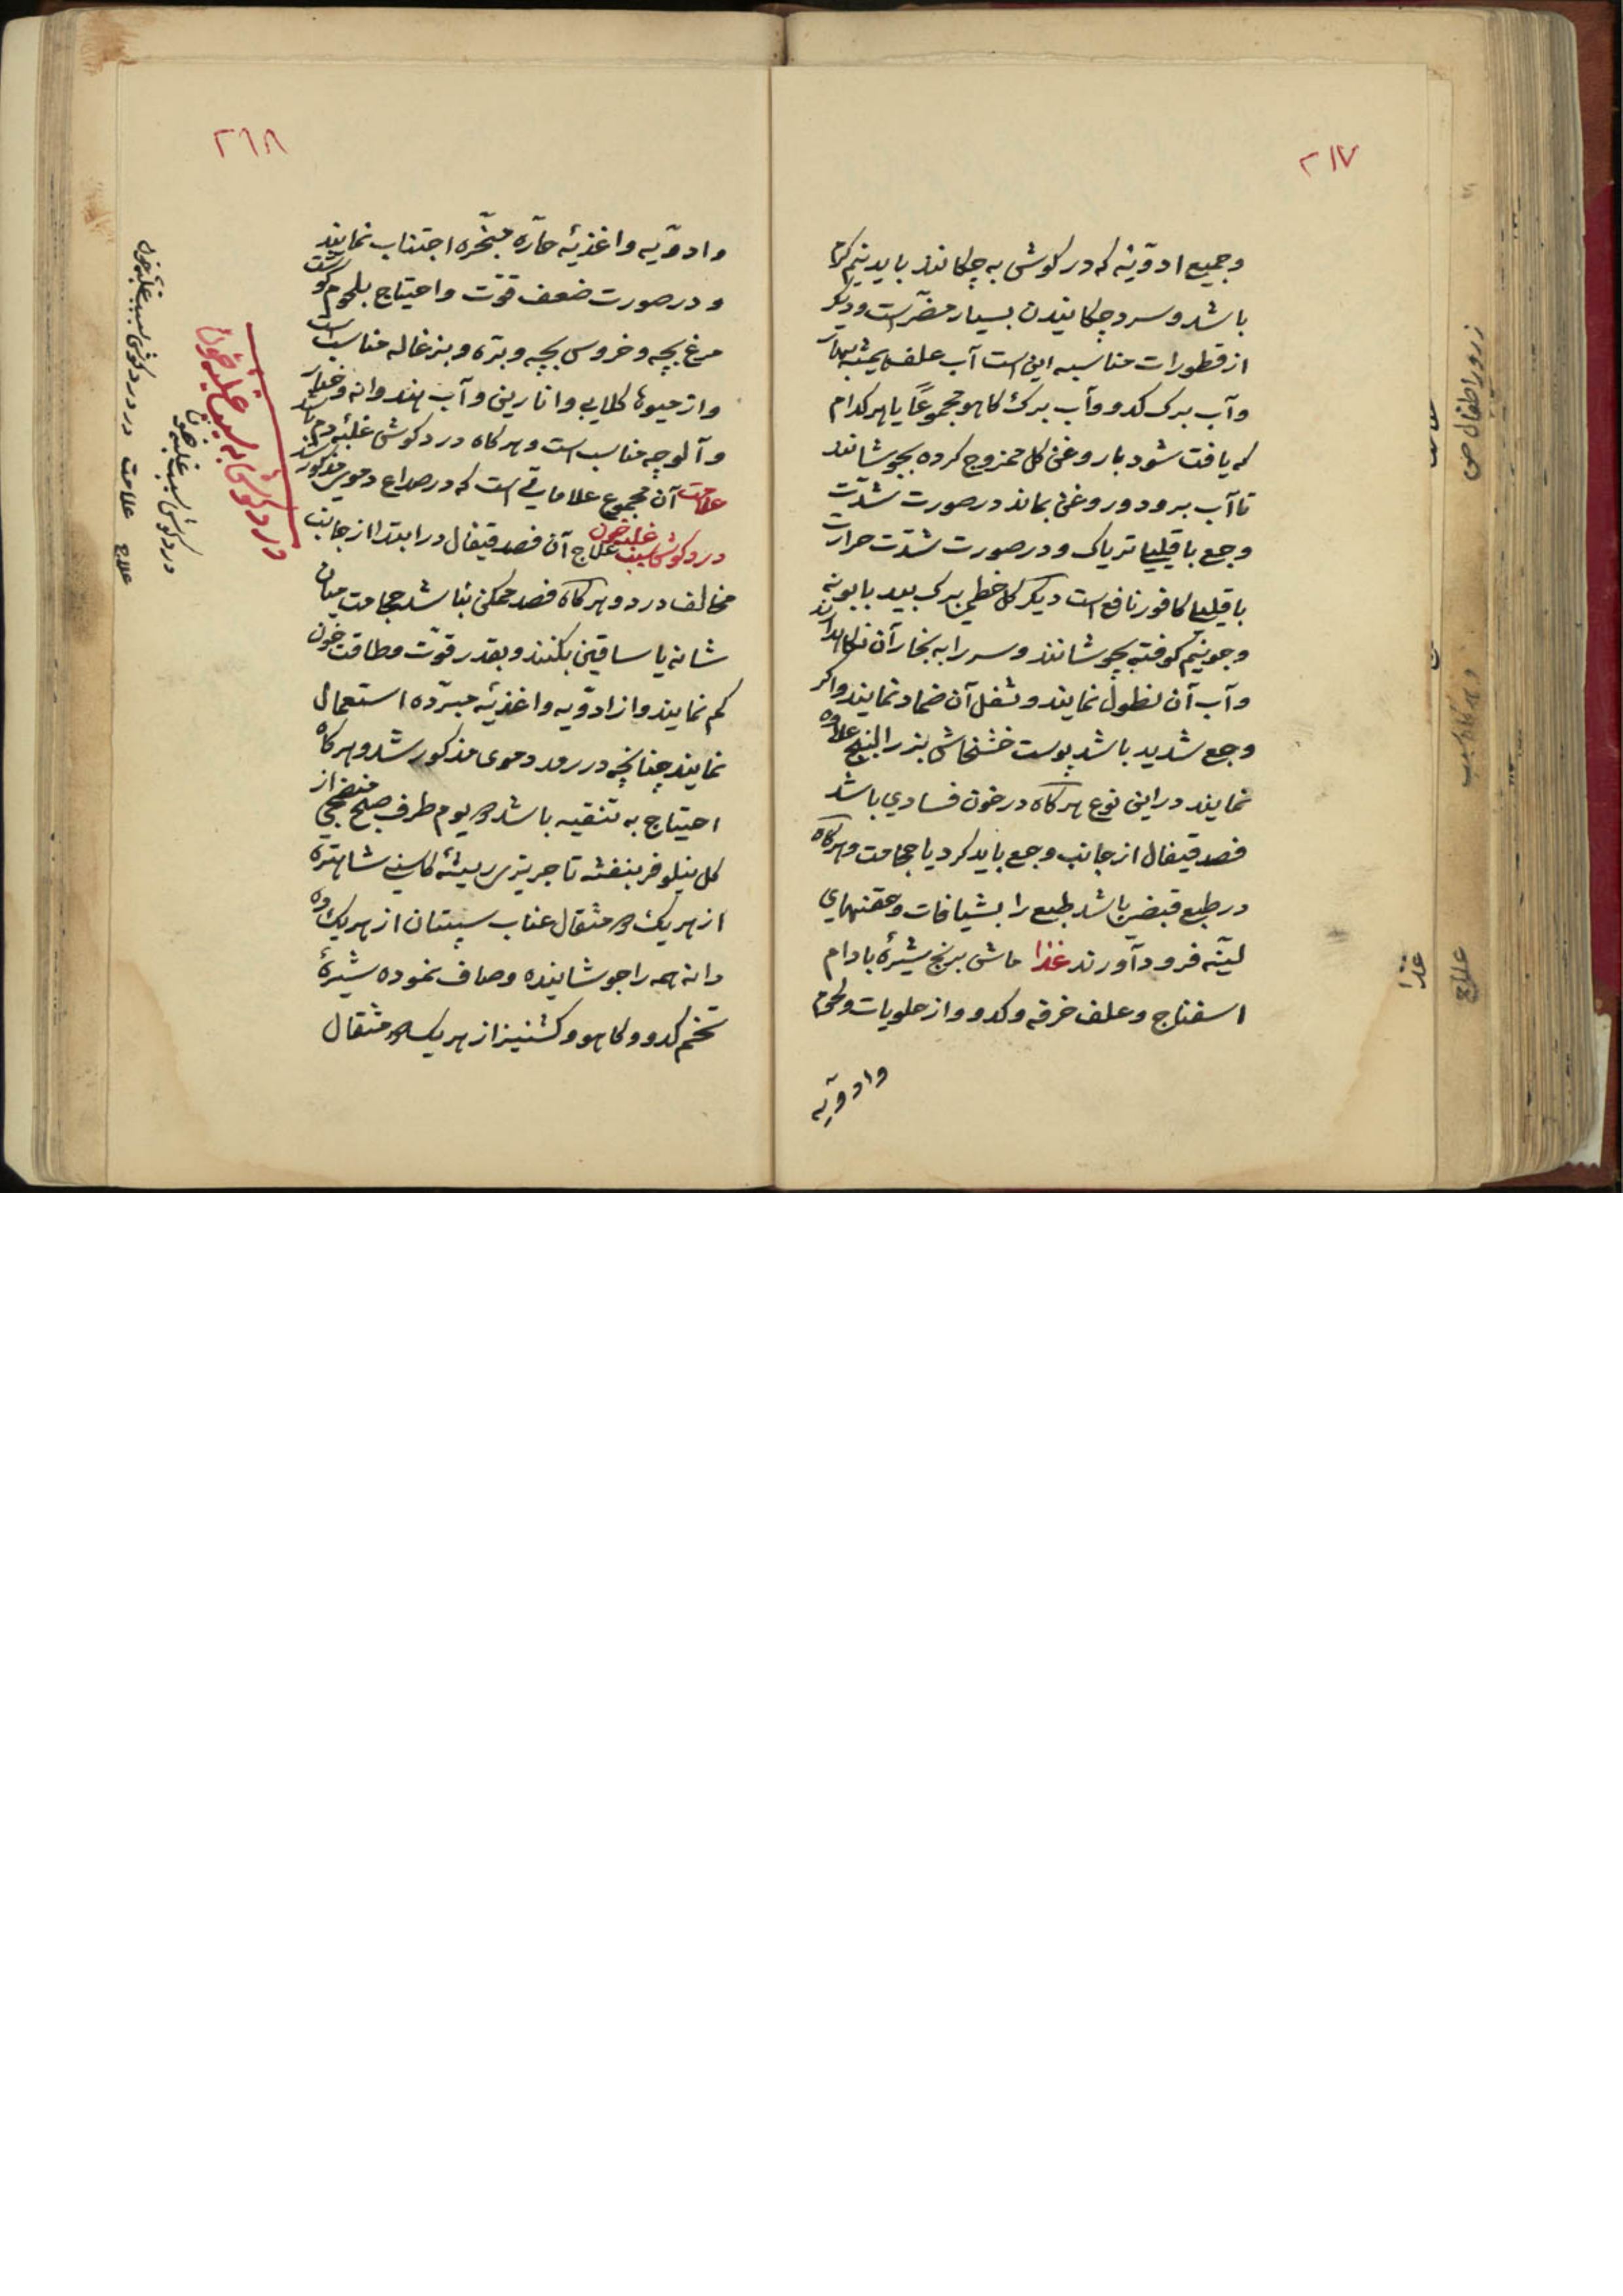 ۲۱۷
و جمیع ادویّه که در کوش به چکانند باید نیم کرم
باشد و سرد چکانیدن بسیار مضرّ است و دیکر
از قطورات مناسبه این است آب علف همیشه بهار
و آب برک کدو و آب برک کاهو مجموعًا یا هر کدام
که یافت شود با روغن کل ممزوج کرده بجوشانند
تا آب برود و روغن بماند در صورت شدّت
وجع با قلیلی تریاک و در صورت شدّت حرارت
با قلیلی کافور نافع است دیکر کل خطمی برک بید بابونه
و جو نیم کوفته بجوشانند و سر را به بخار آن نکاهدارند
و آب آن نطول نمایند و ثفل آن ضماد نمایند و اکر
وجع شدید باشد پوست خشخاش بذر البنج علاوه
نمایند در این نوع هر کاه در خون فسادی باشد
فصد قیفال از جانب وجع باید کرد یا حجامت و هرکاه
در طبع قبضی باشد طبع را بشیافات و حقنهای
لینّه فرود آورند غذا ماش برنج شیرهٔ بادام
اسفناج و علف خرفه و کدو و از حلویات و لحوم
و ادویّه
غذا
علاج
۲٦۸
و ادویّه و اغذیّه حارّه مبخّره اجتناب نمایند
و در صورت ضعف قوّت و احتیاج بلحوم کوشت
مرغ بچه و خروس بچه و برّه و بزغاله مناسب است
و از میوها کلابی و انارین و آب هندوانه و خیار
و آلوچه مناسب است و هر کاه درد کوش غلبهٔ دم باشد
علامت آن مجموع علاماتی است که در صداع دموی مذکور شد
درد کوش بسبب غلبه خون علاج آن فصد قیفال در ابتدا از جانب
مخالف درد و هر کاه فصد ممکن نباشد حجامت میان
شانه یا ساقین بکنند و بقدر قوّت و طاقت خون
کم نمایند و از ادویّه و اغذیّه مبرّده استعمال
نمایند چنانچه در رمد دموی مذکور شد و هر کاه
احتیاج به تنقیه باشد یوم طرف صبح منضجی از
کل نیلوفر بنفشه تاجریزی ریشهٔ کاسنی شاهتره
از هر یک مثقال عناب سپستان از هر یک ده
دانه همه را جوشانیده و صاف نموده شیرهٔ
تخم کدو و کاهو و کشنیز از هر یک مثقال
درد کوش به سبب غلبه خون
درد کوش بسبب غلبه خون
در درد کوش بسبب غلبهٔ خون
علامت
علاج